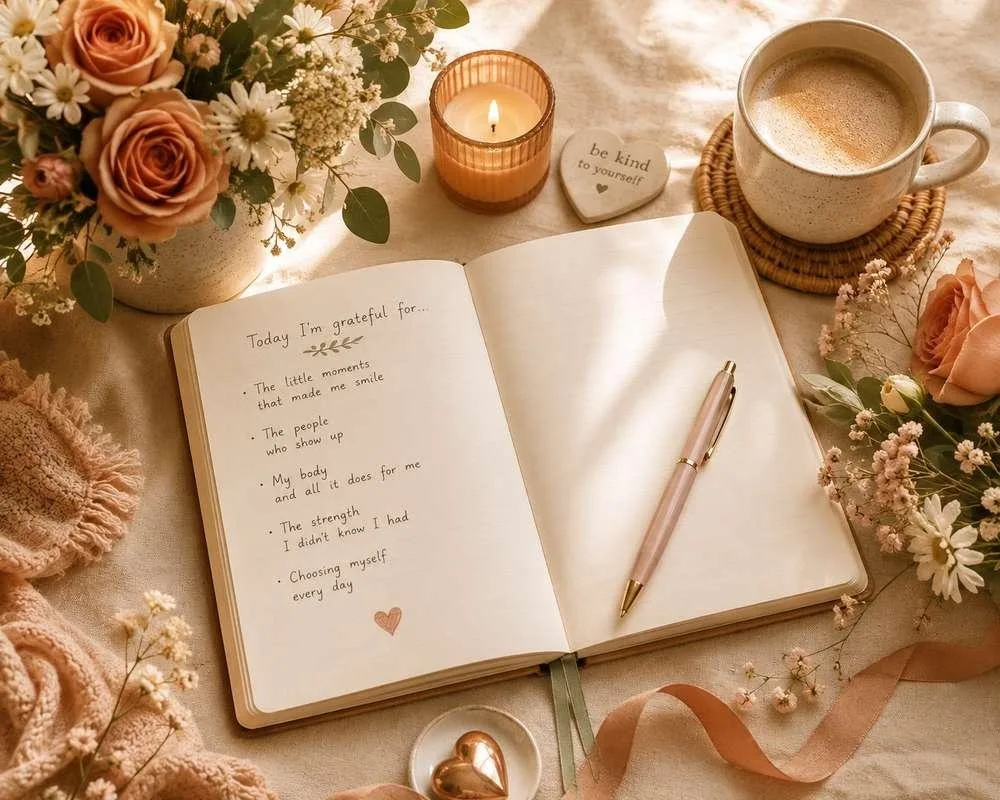 be kind
to yourself
Today I'm grateful for...
• The little moments
that made me smile
• The people
who show up
• My body
and all it does for me
• The strength
I didn't know I had
• Choosing myself
every day